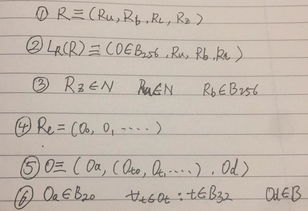 ① R ≡ (Ru, Rb, RL, Rz)
② LR(R) ≡ (0∈B256, Ru, Rb, Ra)
③ Rz∈N Ru∈N Rb∈B256
④ Re = (O0, O1 ....)
⑤ O≡ (Oa, (Ot0, Ot1, ....), Od)
⑥ Oa∈B20 ∀t∈Ot : t∈B32 Od∈B